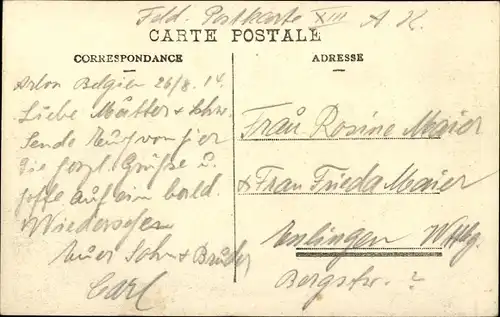 Feld. Postkarte XIII A. K.
CARTE POSTALE
CORRESPONDANCE
ADRESSE
Arlon Belgien 26/8. 14.
Liebe Mütter + Schw.
Sende Euch von hier
die herzl. Grüße u.
hoffe auf ein bald.
Wiedersehen
Euer Sohn + Bruder
Carl
Frau Rosine Maier
+ Frau Frieda Maier
Wttbg.
Bergstr. ?